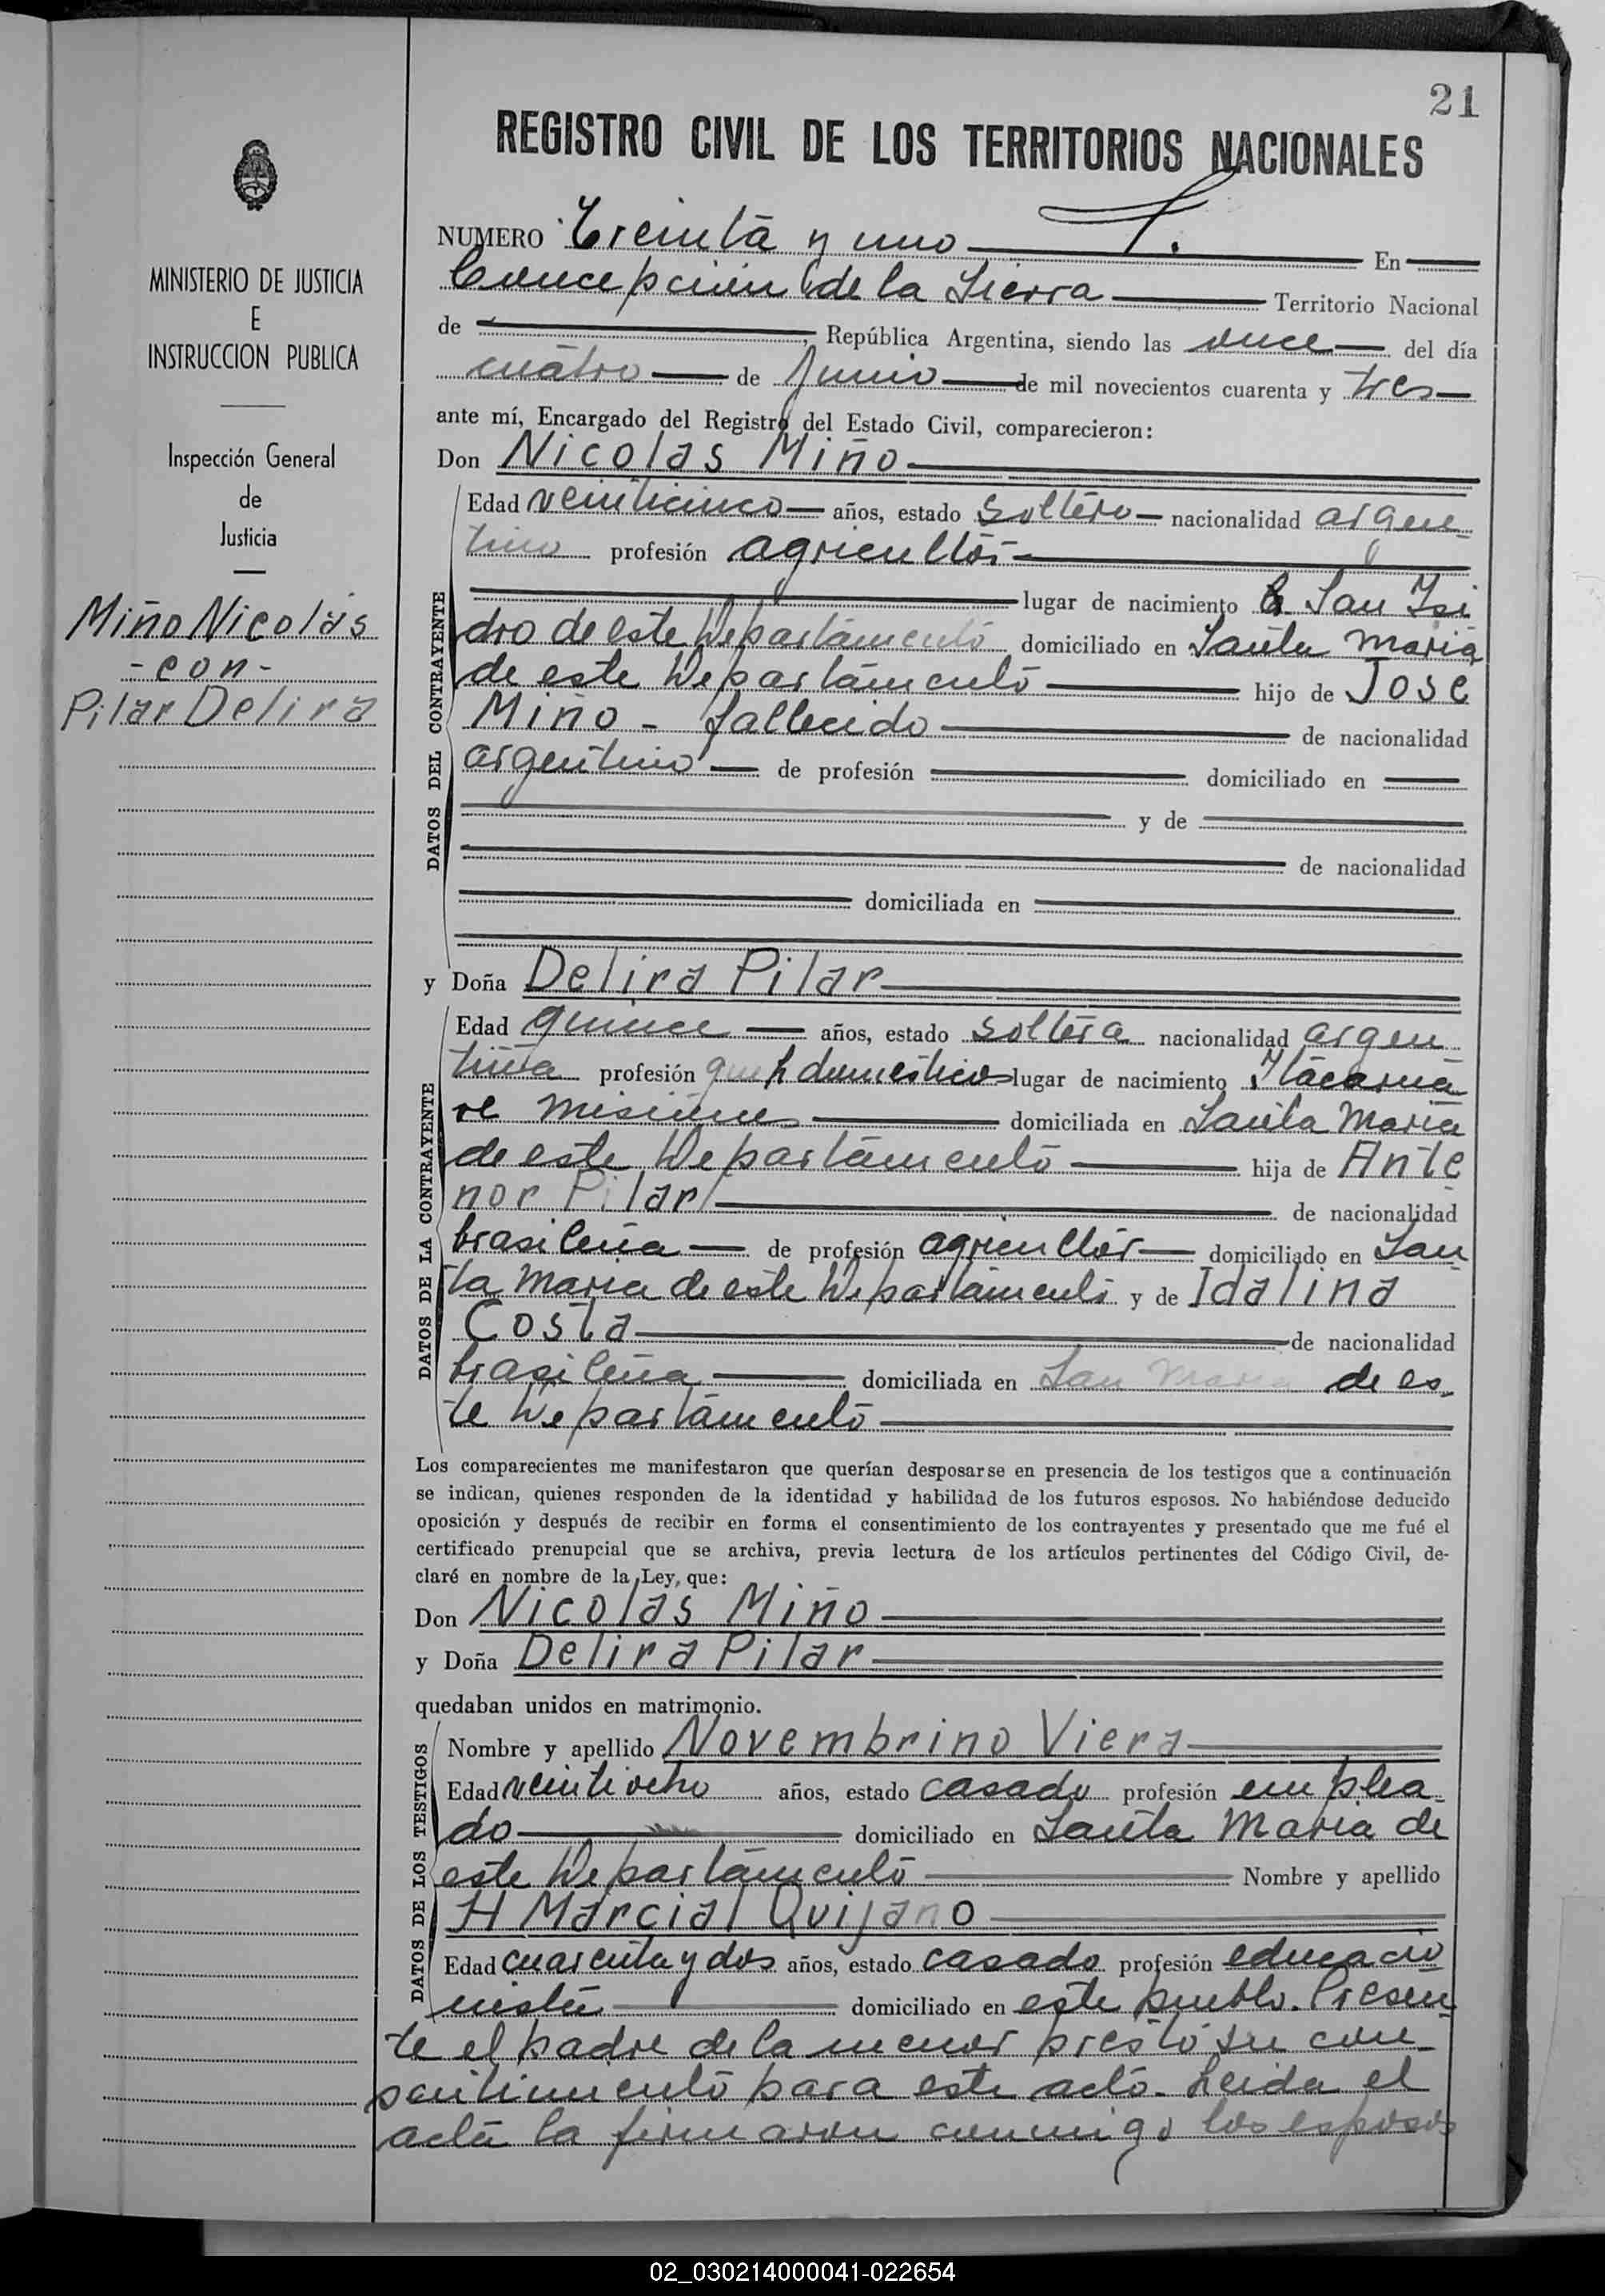 21
REGISTRO CIVIL DE LOS TERRITORIOS NACIONALES
MINISTERIO DE JUSTICIA
E
INSTRUCCION PUBLICA
Inspección General
de
Justicia
Miño Nicolás
- con -
Pilar Delira
NUMERO Treinta y uno En
Concepción de la Sierra Territorio Nacional
de , República Argentina, siendo las once del día
cuatro de Junio de mil novecientos cuarenta y tres
ante mí, Encargado del Registro del Estado Civil, comparecieron:
Don Nicolas Miño
DATOS DEL CONTRAYENTE
Edad veinticinco años, estado soltero nacionalidad argen
tino profesión agricultor
lugar de nacimiento San Isi
dro de este Departamento domiciliado en Santa Maria
de este Departamento hijo de José
Miño - fallecido de nacionalidad
argentino de profesión domiciliado en
y de
de nacionalidad
domiciliada en
y Doña Delira Pilar
DATOS DE LA CONTRAYENTE
Edad quince años, estado soltera nacionalidad argen
tina profesión domésticos lugar de nacimiento Itacarua
re Misiones domiciliada en Santa Maria
de este Departamento hija de Ante
nor Pilar de nacionalidad
brasileña de profesión agricultor domiciliado en San
ta Maria de este Departamento y de Idalina
Costa de nacionalidad
brasileña domiciliada en San Maria de es
te Departamento
Los comparecientes me manifestaron que querían desposarse en presencia de los testigos que a continuación
se indican, quienes responden de la identidad y habilidad de los futuros esposos. No habiéndose deducido
oposición y después de recibir en forma el consentimiento de los contrayentes y presentado que me fué el
certificado prenupcial que se archiva, previa lectura de los artículos pertinentes del Código Civil, de-
claré en nombre de la Ley, que:
Don Nicolas Miño
y Doña Delira Pilar
quedaban unidos en matrimonio.
DATOS DE LOS TESTIGOS
Nombre y apellido Novembrino Viera
Edad veintiocho años, estado casado profesión emplea
do domiciliado en Santa Maria de
este Departamento Nombre y apellido
H Marcial Quijano
Edad cuarenta y dos años, estado casado profesión educacio
nista domiciliado en este pueblo. Presen
te el padre de la menor prestó su con
sentimiento para este acto. Leida el
acta la firmaron conmigo los esposos
02_030214000041-022654